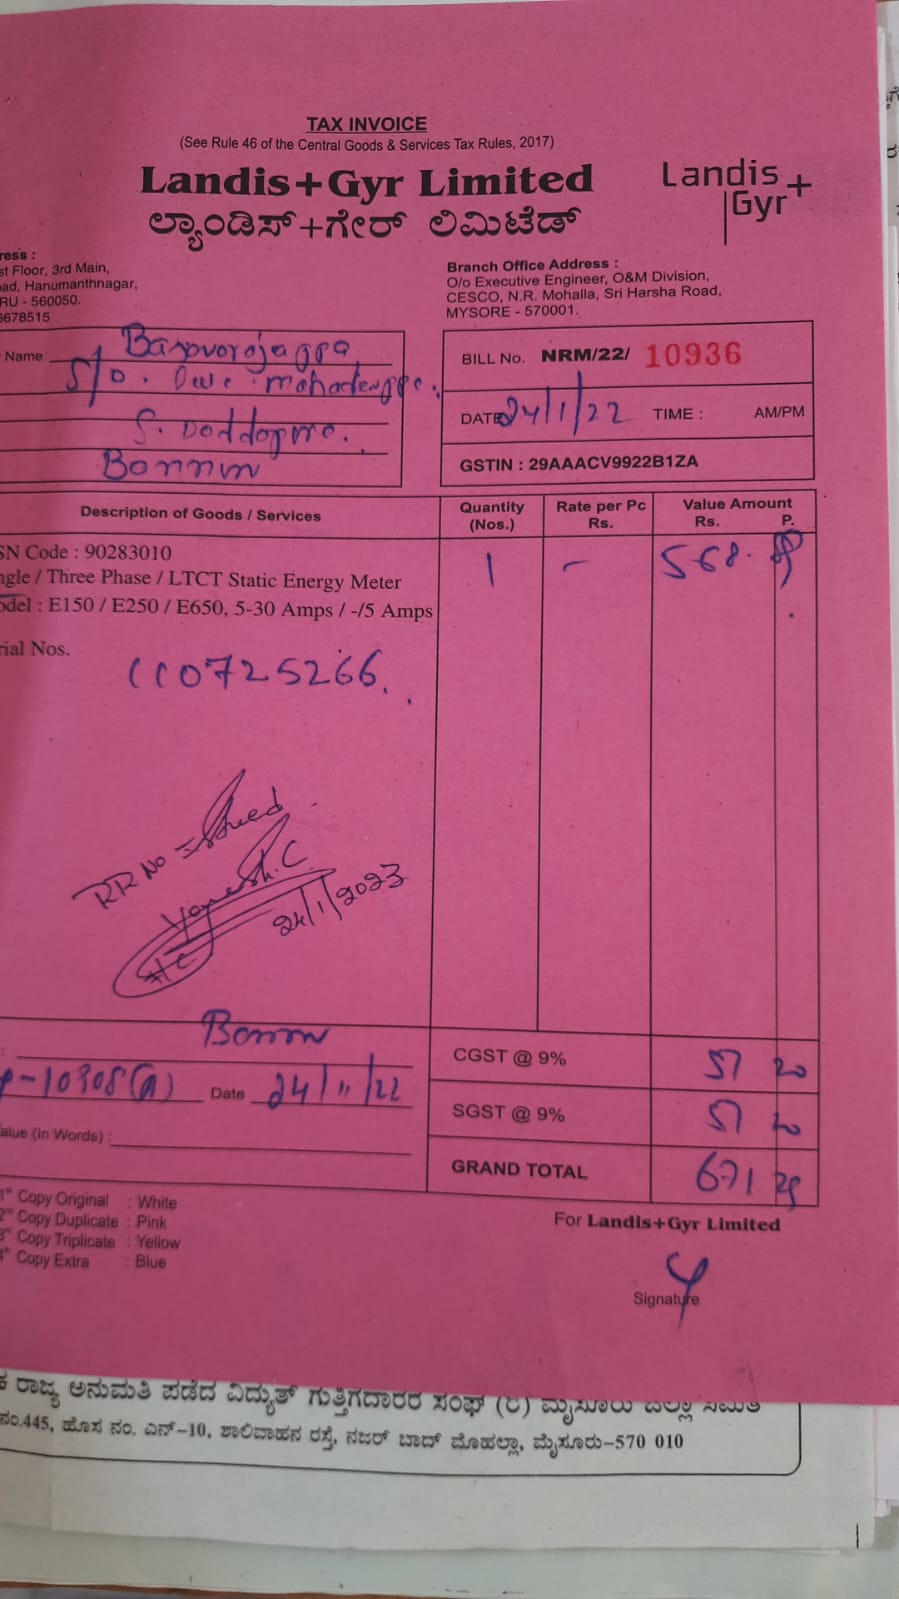 TAX INVOICE
(See Rule 46 of the Central Goods & Services Tax Rules, 2017)
Landis+Gyr Limited
ಲ್ಯಾಂಡಿಸ್+ಗೇರ್ ಲಿಮಿಟೆಡ್
Landis+
Gyr
ress :
st Floor, 3rd Main,
oad, Hanumanthnagar,
RU - 560050.
6678515
Branch Office Address :
O/o Executive Engineer, O&M Division,
CESCO, N.R. Mohalla, Sri Harsha Road,
MYSORE - 570001.
Name
S/o.
BILL No. NRM/22/ 10936
DATE 24/1/22 TIME : AM/PM
GSTIN : 29AAACV9922B1ZA
Description of Goods / Services Quantity (Nos.) Rate per Pc Rs. Value Amount Rs. P.
SN Code : 90283010 1 - 568.
ngle / Three Phase / LTCT Static Energy Meter
odel : E150 / E250 / E650, 5-30 Amps / -/5 Amps
rial Nos.
110725266
RR No Issued
24/1/2023
CGST @ 9% 51 20
Date 24/11/22
SGST @ 9% 51 20
alue (In Words) :
GRAND TOTAL 671
1st Copy Original : White
2nd Copy Duplicate : Pink
3rd Copy Triplicate : Yellow
4th Copy Extra : Blue
For Landis+Gyr Limited
Signature
ರಾಜ್ಯ ಅನುಮತಿ ಪಡೆದ ವಿದ್ಯುತ್ ಗುತ್ತಿಗದಾರರ ಸಂಘ (ರಿ) ಮೈಸೂರು ಜಿಲ್ಲಾ ಸಮಿತಿ
ನಂ.445, ಹೊಸ ನಂ. ಎನ್-10, ಶಾಲಿವಾಹನ ರಸ್ತೆ, ನಜರ್ ಬಾದ್ ಮೊಹಲ್ಲಾ, ಮೈಸೂರು-570 010